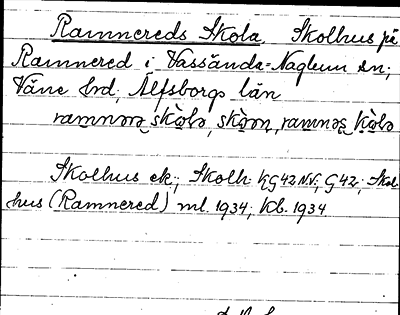 Ramnereds Skola. Skolhus på
Ramnered i Vassända-Naglum sn;
Väne hd; Älfsborgs län
Skolhus ek.; Skolh. KG42NV; G42; Skol
hus (Ramnered) ml. 1934; Kb. 1934